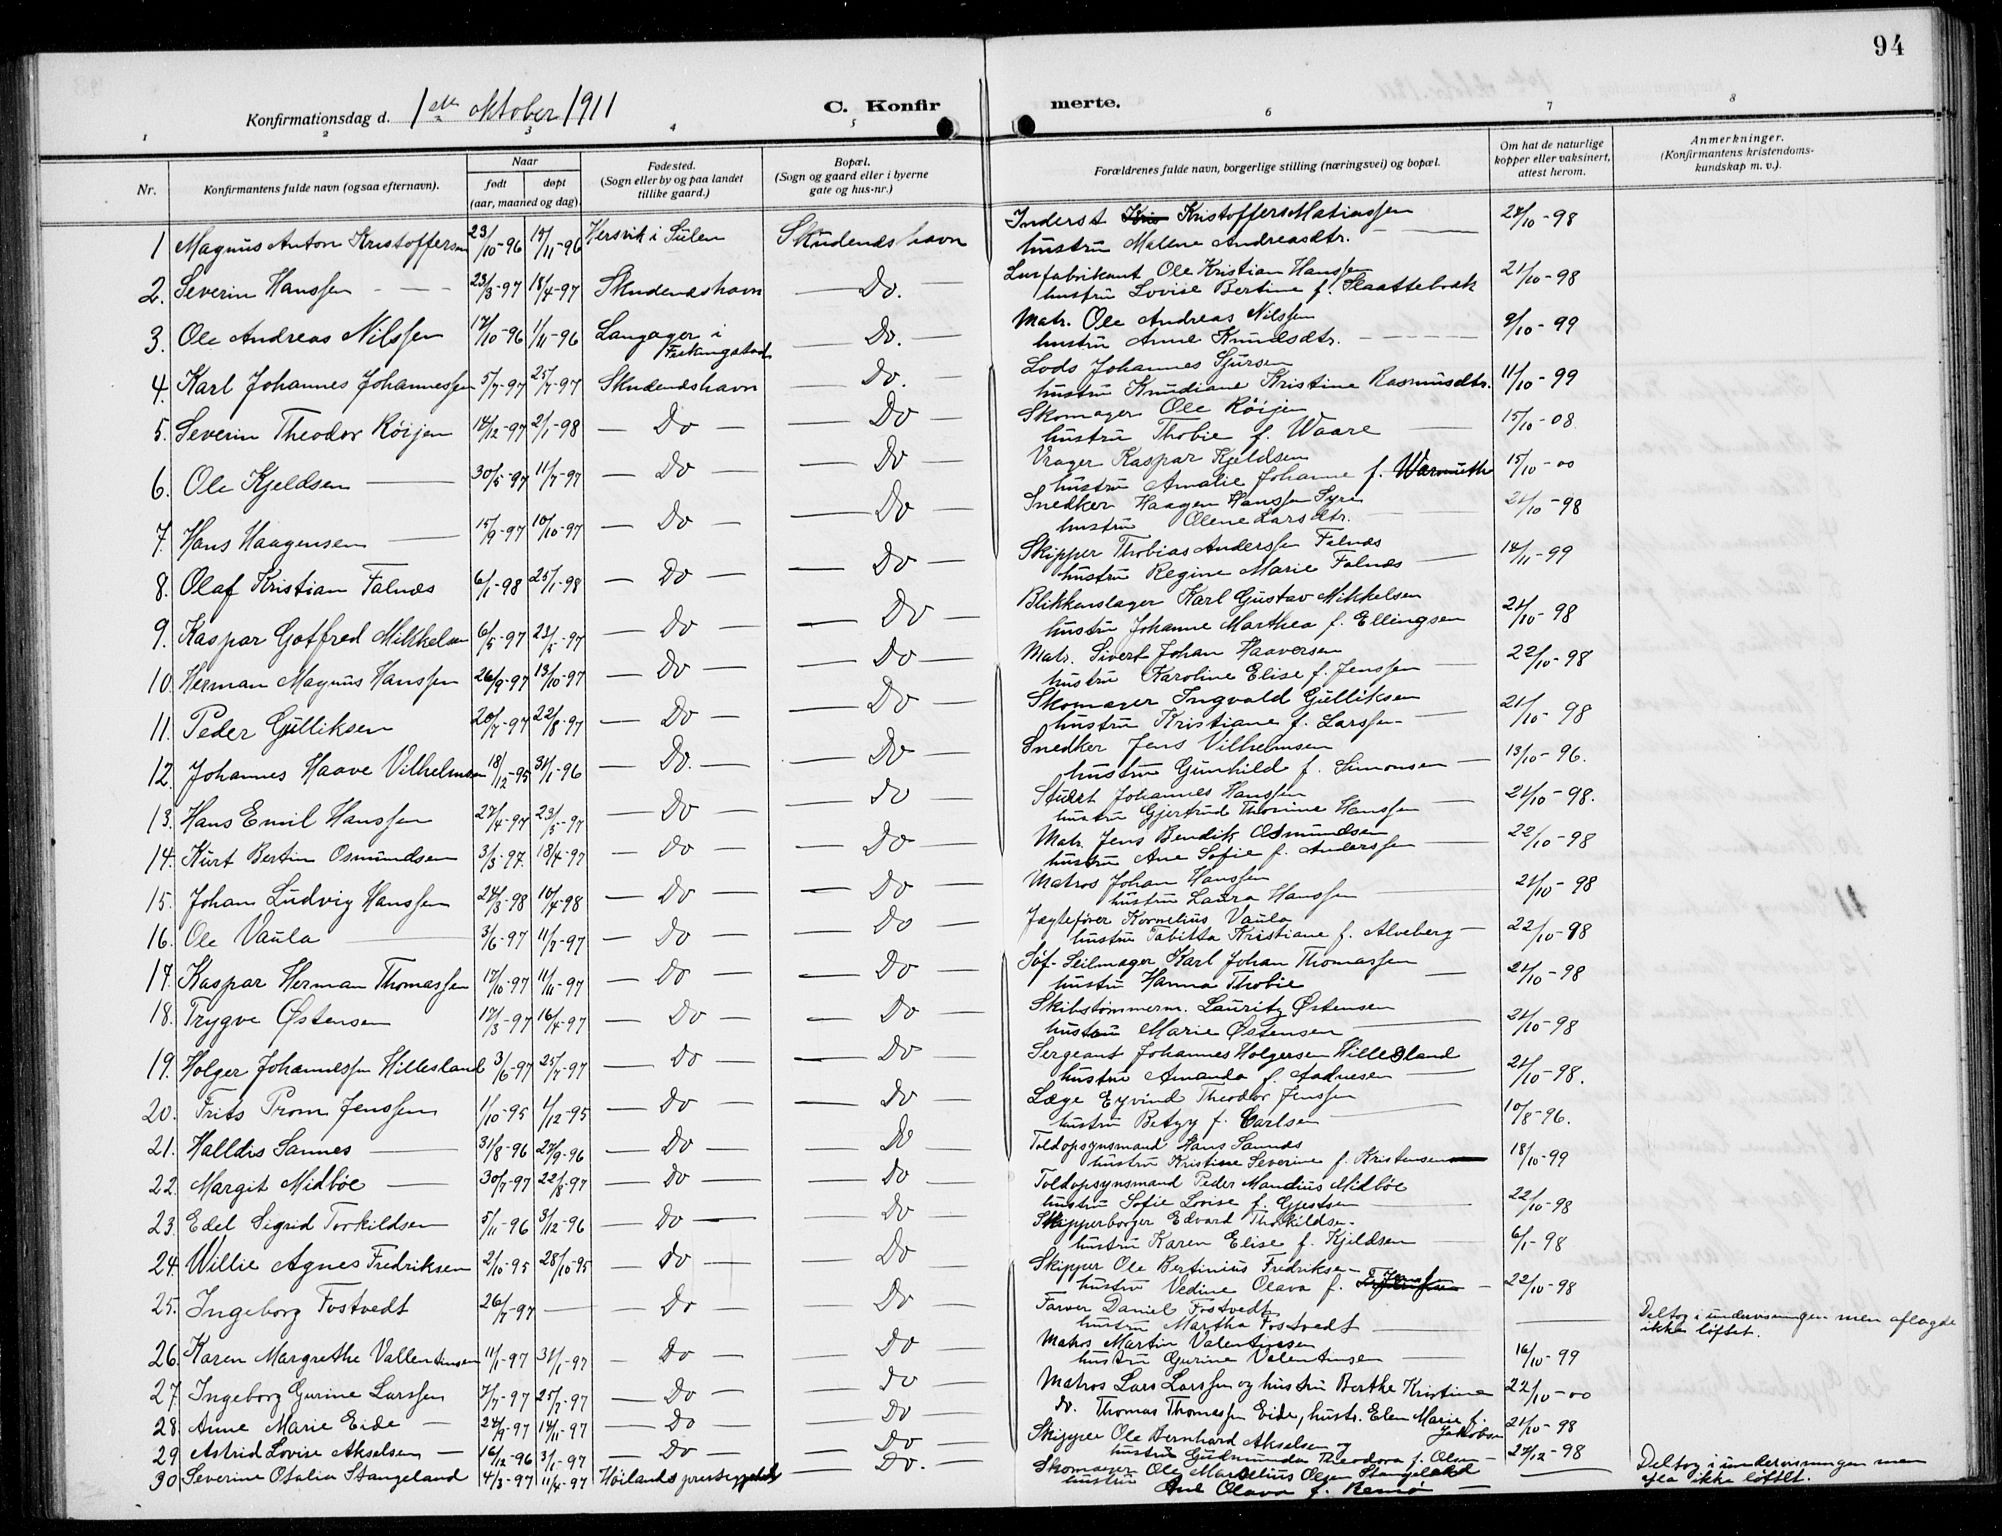 94
Konfirmationsdag d. 1ste oktober 1911
C. Konfirmerte.
1 2 3 4 5 6 7 8
Nr. Konfirmantens fulde navn (ogsaa efternavn). Naar født døpt (aar, maaned og dag). Fødested. (Sogn eller by og paa landet tillike gaard.) Bopæl. (Sogn og gaard eller i byerne gate og hus-nr.) Forældrenes fulde navn, borgerlige stilling (næringsvei) og bopæl. Om hat de naturlige kopper eller vaksinert, attest herom. Anmerkninger. (Konfirmantens kristendomskundskap m. v.).
1 Magnus Anton Kristoffersen 23/10-96 /11-96 Hersvik i Sulen Skudeneshavn Inderst Kristoffer Matiassen 24/10-98
hustru Malene Andreasdtr.
2. Severin Hanssen 23/3-97 18/4-97 Skudeneshavn Do. Ole Kristian Hanssen 21/10-98
hustru Lovise Bertine f. Slaattebræk
3. Ole Andreas Nilssen 17/10-96 1/11-96 Langager i Ferkingstad Do. Matr. Ole Andreas Nilssen 9/10-99
hustru Anne Knudsdtr.
4. Karl Johannes Johannessen 5/7-97 25/7-97 Skudeneshavn Do. Lods Johannes Sjursen 11/10-99
hustru Knudiane Kristine Rasmusdtr.
5. Severin Theodor Röijen 14/12-97 2/1-98 Do Do Skomager Ole Röijen 15/10-08
hustru Thobie f. Waare
6. Ole Kjeldsen 30/5-97 11/7-97 Do Do Vrager Kaspar Kjeldsen 15/10-00
hustru Amalie Johanne f. Warmuth
7. Hans Haagensen 15/9-97 10/10-97 Do Do Snedker Haagen Hanssen Syre 21/10-98
hustru Olene Larsdtr.
8. Olaf Kristian Falnæs 6/1-98 25/1-98 Do Do Skipper Thobias Anderssen Falnæs 14/11-99
hustru Regine Marie Falnæs
9. Kaspar Gotfred Mikkelsen 6/5-97 23/5-97 Do Do Blikkenslager Karl Gustav Mikkelsen 21/10-98
hustru Johanne Marthea f. Ellingsen
10. Herman Magnus Hanssen 26/9-97 13/10-97 Do Do Matr. Sivert Johan Haaversen 22/10-98
hustru Karoline Elise f. Jenssen
11. Peder Gulliksen 20/7-97 22/8-97 Do Do Skomager Ingvald Gulliksen 21/10-98
hustru Kristiane f. Larssen
12. Johannes Haave Vilhelmsen 18/12-95 31/1-96 Do. Do Snedker Jens Vilhelmsen 13/10-96.
hustru Gunhild f. Simonsen
13. Hans Emil Hanssen 27/4-97 23/5-97 Do Do Johannes Hanssen 21/10-98.
hustru Gjertrud Thomine Hanssen
14. Kurt Bertin Osmundsen 3/3-97. 18/4-97 Do Do Matr. Jens Bendik Osmundsen 22/10-98
hustru Ane Sofie f. Anderssen
15. Johan Ludvig Hanssen 24/3-98 10/4-98 Do Do Matros Johan Hanssen 21/10-98
hustru Laura Hanssen
16. Ole Vaula 3/6-97 11/7-97 Do Do Jagtefører Kornelius Vaula 22/10-98
hustru Tabitta Kristiane f. Alveberg
17. Kaspar Herman Thomassen 17/10-97 11/11-97 Do Do Seilmager Karl Johan Thomassen 21/10-98
hustru Hanna Thobie
18. Trygve Østensen 17/3-97 16/4-97 Do Do Skibstømmerm. Lauritz Østensen 21/10-98
hustru Marie Østensen
19. Holger Johannessen Hillesland 3/6-97 25/7-97 Do Do Sergeant Johannes Holgersen Hillesland 21/10-98.
hustru Amanda f. Aadnesen
20. Frits Prom Jenssen 1/10-95 1/12-95 Do Do Læge Eyvind Theodor Jenssen 10/8-96.
hustru Betzy f. Carlsen
21. Halldis Sannes 31/8-96 27/9-96 Do Do Toldopsynsmand Hans Sannes 18/10-99
hustru Kristine Severine f. Kristensen
22. Margit Midböe 30/7-97 22/8-97 Do Do Toldopsynsmand Peder Mandius Midböe 22/10-98
hustru Sofie Lovise f. Gjestsen
23. Edel Sigrid Torkildsen 5/11-96 3/12-96 Do Do Skipperborger Edvard Thorkildsen 6/1-98
hustru Karen Elise f. Kjeldsen
24. Willie Agnes Fredriksen 2/10-95 28/10-95 Do Do Skipper Ole Bertinius Fredriksen 22/10-98
hustru Vedine Olava f. Jenssen
25. Ingeborg Fostvedt 26/7-97 Do Do Farver Daniel Fostvedt Deltog i undervisningen men aflagde ikke løftet.
hustru Martha Fostvedt
26. Karen Margrethe Vallentinsen 11/1-97 31/1-97 Do Do Matros Martin Valentinsen 16/10-99
hustru Gurine Valentinsen
27. Ingeborg Gurine Larssen 7/7-97 25/7-97 Do Do Matros Lars Larssen og hustru Berthe Kristine 22/10-00
28. Anne Marie Eide 24/9-97 14/11-97 Do Do do. Thomas Thomassen Eide, hustr. Elen Marie f. Jakobsen 21/10-98
29 Astrid Lovise Akselsen 16/12-96 3/1-97 Do Do Skipper Ole Bernhard Akselsen og 27/12-98
hustru Gudmunda Theodora f. Olsen
30 Severine Otalia Stangeland 4/3-97 11/4-97 Høilands prestegjeld Do. Skomager Ole Marselius Olsen Stangeland Deltog i undervisningen men ikke løftet.
hustru Ane Olava f. Remø